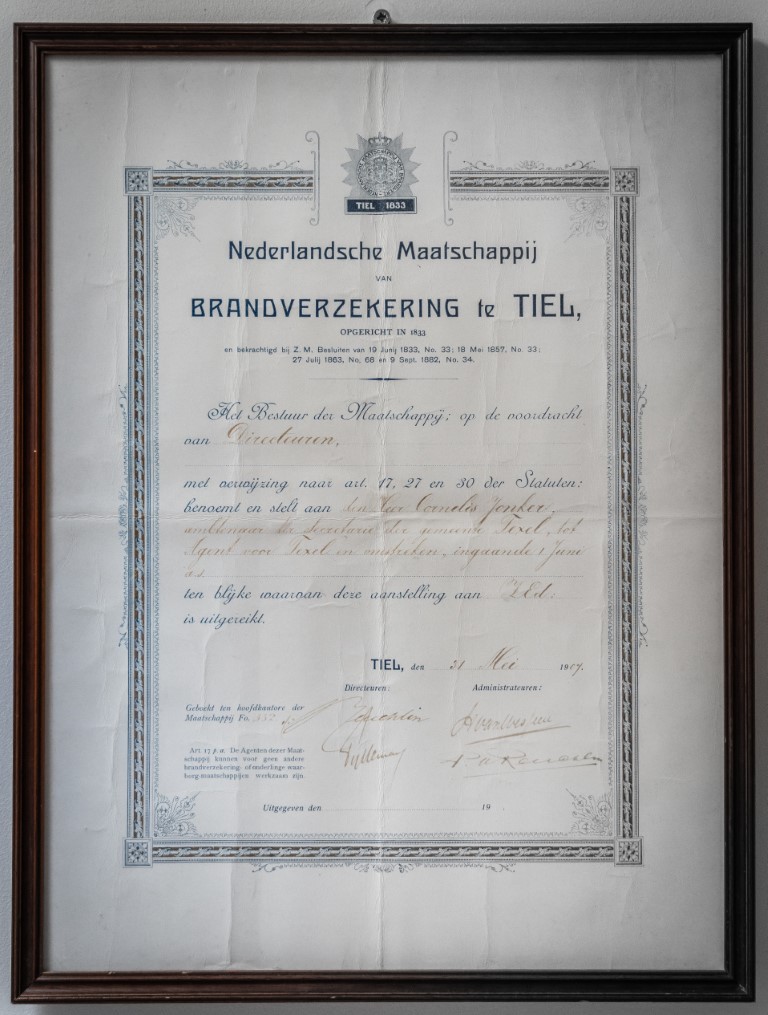 TIEL 1833
Nederlandsche Maatschappij
VAN
BRANDVERZEKERING te TIEL,
OPGERICHT IN 1833
en bekrachtigd bij Z. M. Besluiten van 19 Junij 1833, No. 33; 18 Mei 1857, No. 33;
27 Julij 1863, No. 68 en 9 Sept. 1882, No. 34.
Het Bestuur der Maatschappij; op de voordracht
van Directeuren,
met verwijzing naar art. 17, 27 en 30 der Statuten:
benoemt en stelt aan den Heer Cornelis Jonker,
ambtenaar ter Secretarie der gemeente Texel, tot
Agent voor Texel en omstreken, ingaande 1 Juni
a.s.
ten blijke waarvan deze aanstelling aan ZEd:
is uitgereikt.
TIEL, den 31 Mei 1907.
Directeuren: Administrateuren:
Geboekt ten hoofdkantore der
Maatschappij Fo.
Art. 17 p.a. De Agenten dezer Maat-
schappij kunnen voor geen andere
brandverzekering- of onderlinge waar-
borg-maatschappijen werkzaam zijn.
Uitgegeven den 19